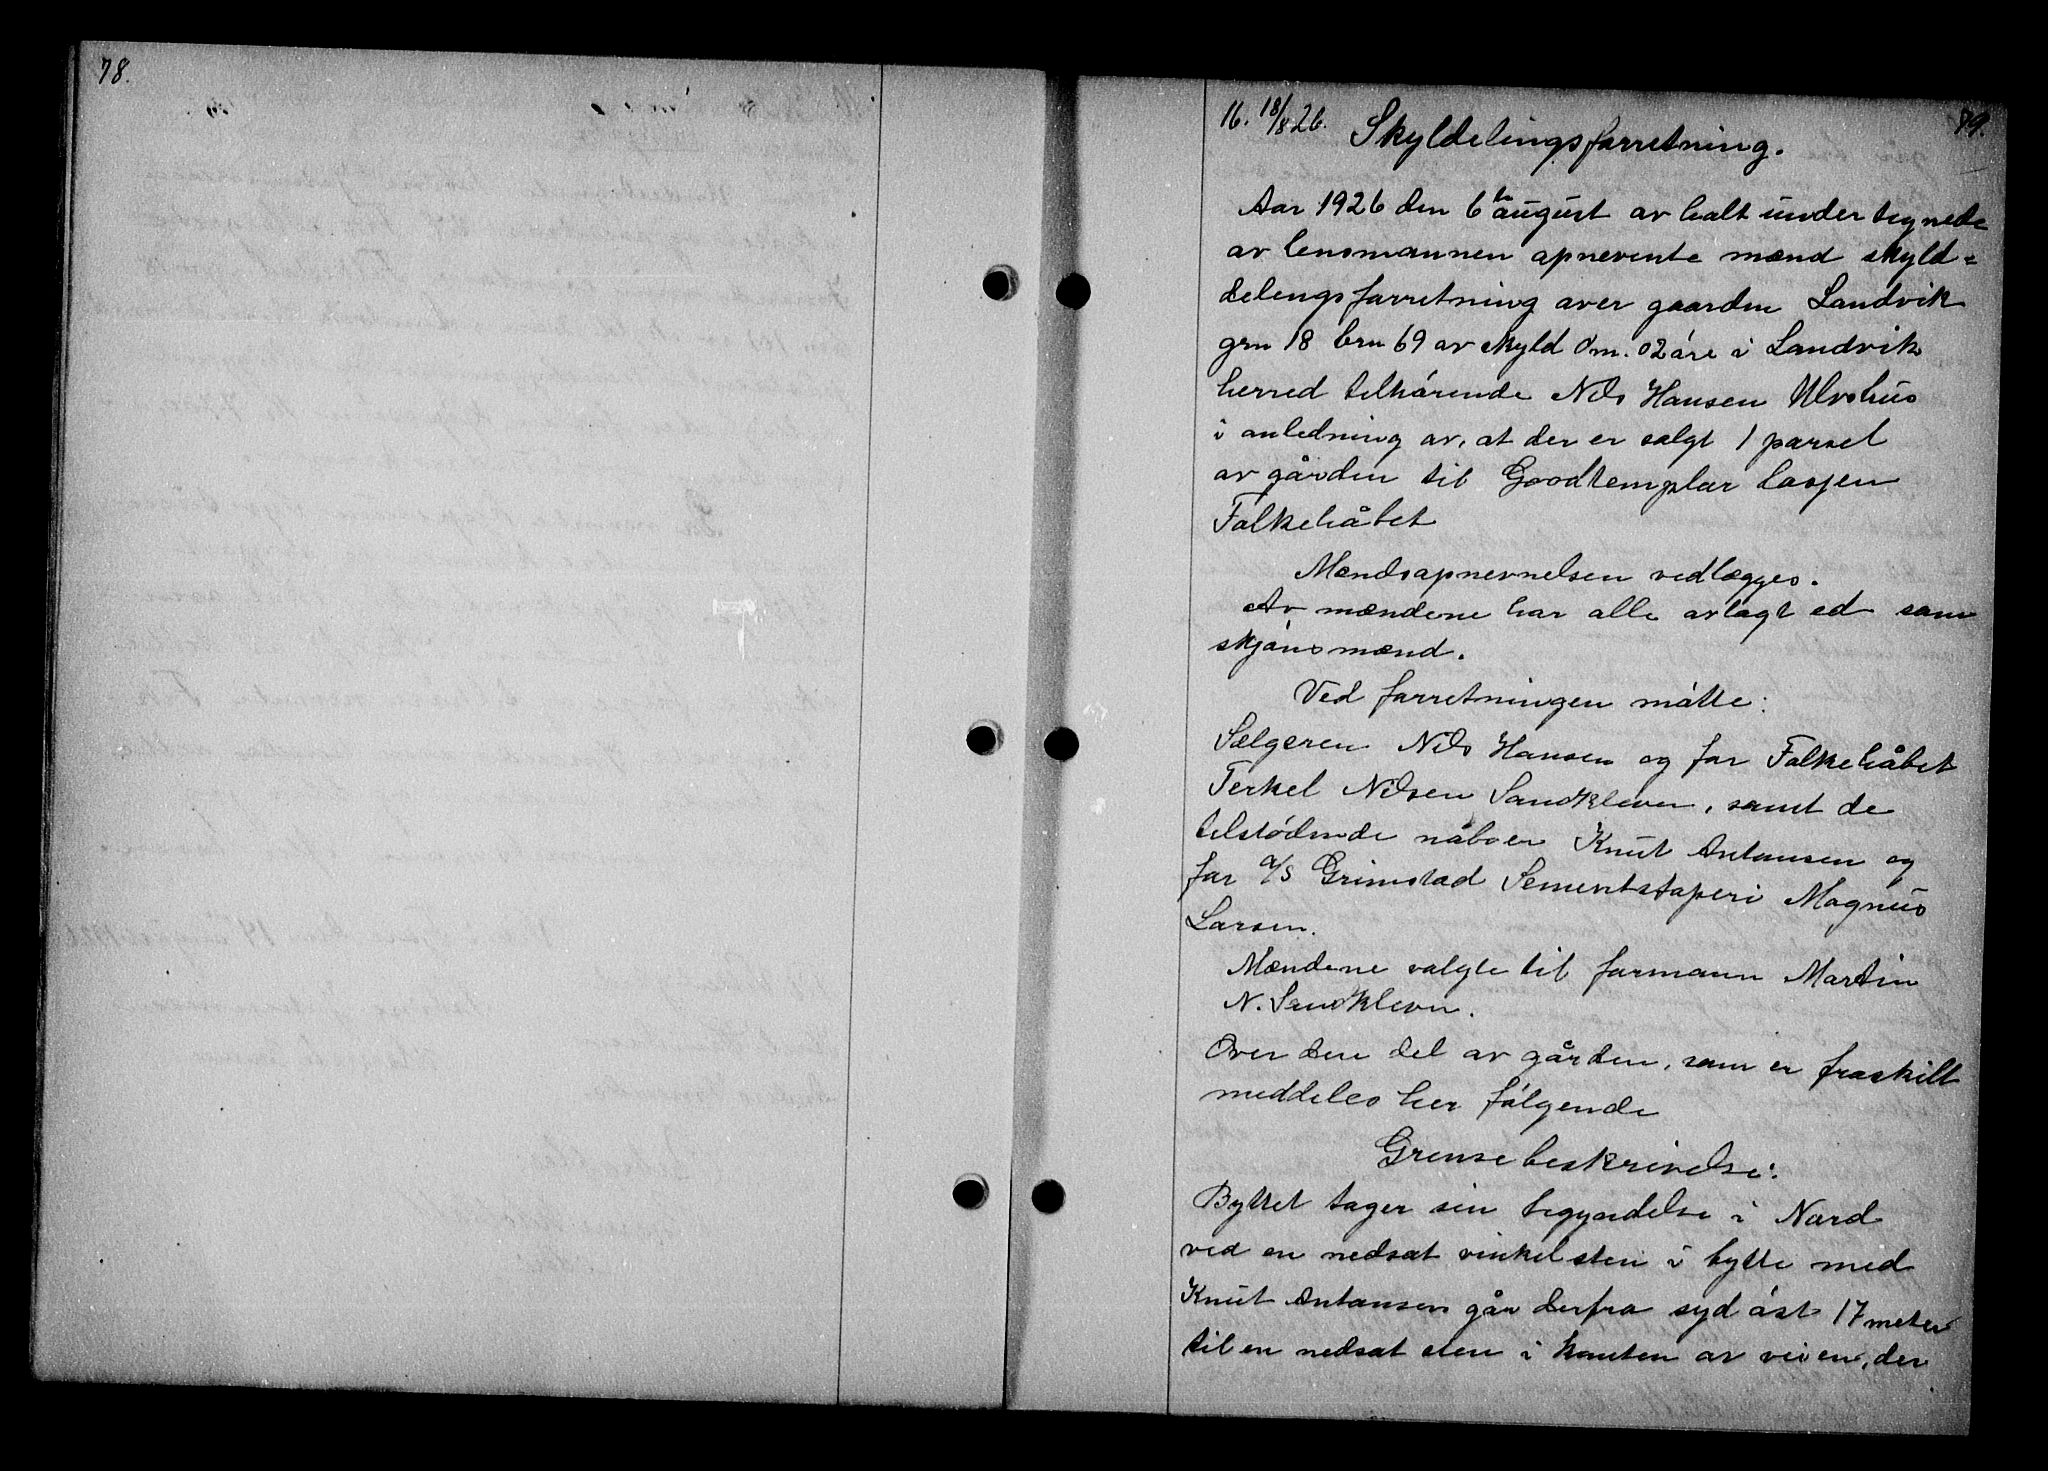 78.
79.
16. 18/8 26.
Skyldelingsforretning.
Aar 1926 den 6te august av holt undertegnede
av lensmannen opnevente mænd skyld=
delingsforretning over gaarden Landvik
grn 18 brn 69 av skyld 0 m. 02 øre i Landvik
herred tilhørende Nils Hansen Ulvshus
i anledning av, at der er solgt 1 parsel
av gården til Goodtemplar losjen
Folkehåbet
Mændsopnevnelsen vedlægges.
Av mændene har alle avlagt ed som
skjønsmænd.
Ved forretningen møtte:
Sælgeren Nils Hansen og for Folkehåbet
Terkel Nilsen Sandkleven, samt de
tilstødende naboer Knut Antonsen og
for A/S Grimstad Sementstøperi Magnus
Larsen.
Mændene valgte til formann Martin
N. Sandkleven.
Over den del av gården, som er fraskilt
meddeles her følgende
Grensebeskrivelse:
Byttet tager sin begyndelse i Nord
ved en nedsat vinkelsten i bytte med
Knut Antonsen går derfra syd øst 17 meter
til en nedsat sten i kanten av veien, der